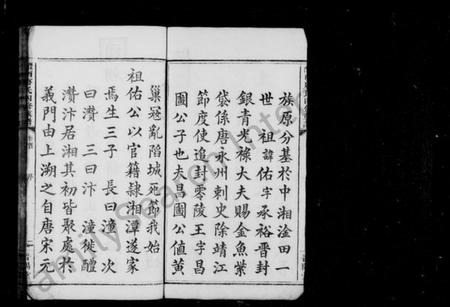 族原分基於中湘淦田一
世祖諱佑字承裕晉封
銀青光祿大夫賜金魚紫
袋係唐永州刺史除靖江
節度使追封零陵王字昌
圖公子也夫昌圖公値黃
巢冦亂陷城死節我始
祖佑公以官籍隸湘潭遂家
焉生三子長曰潼次
曰灒三曰汴潼徙醴
灒汴居湘其初皆聚處於
義門由上溯之自唐宋元